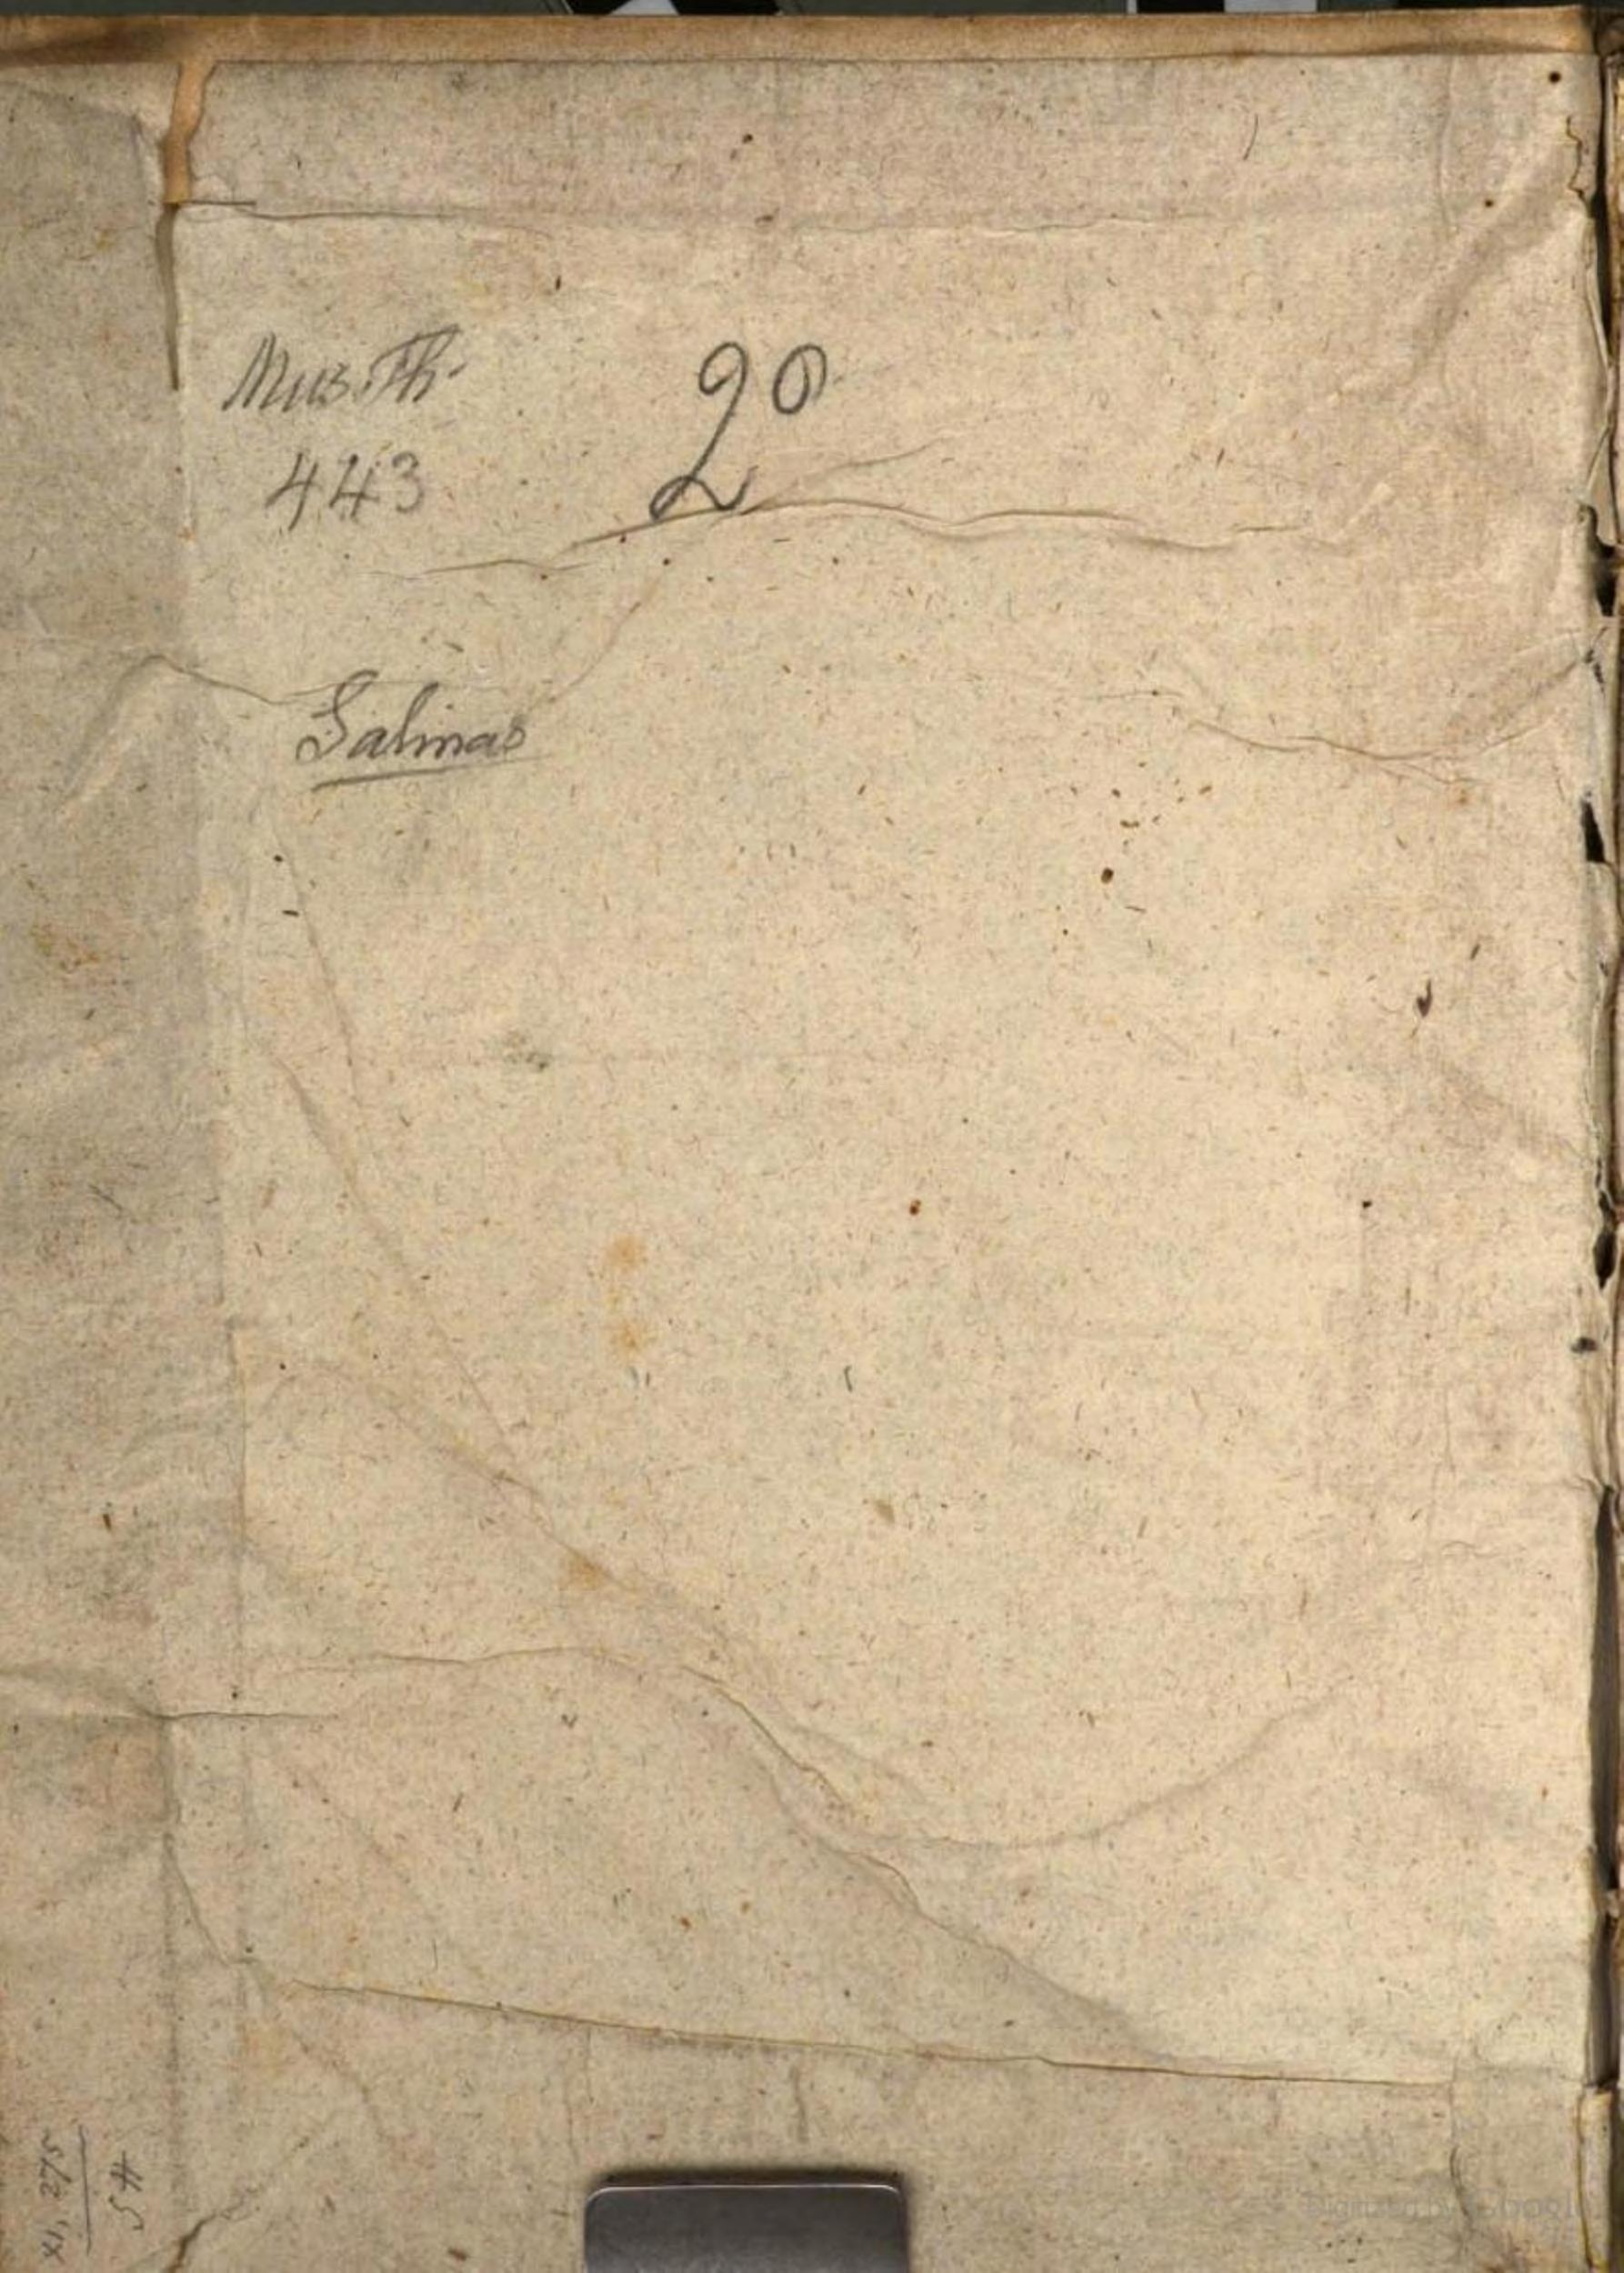 Mus. Th. 2º
443
Salinas
XI, 275
45
Digitized by Google